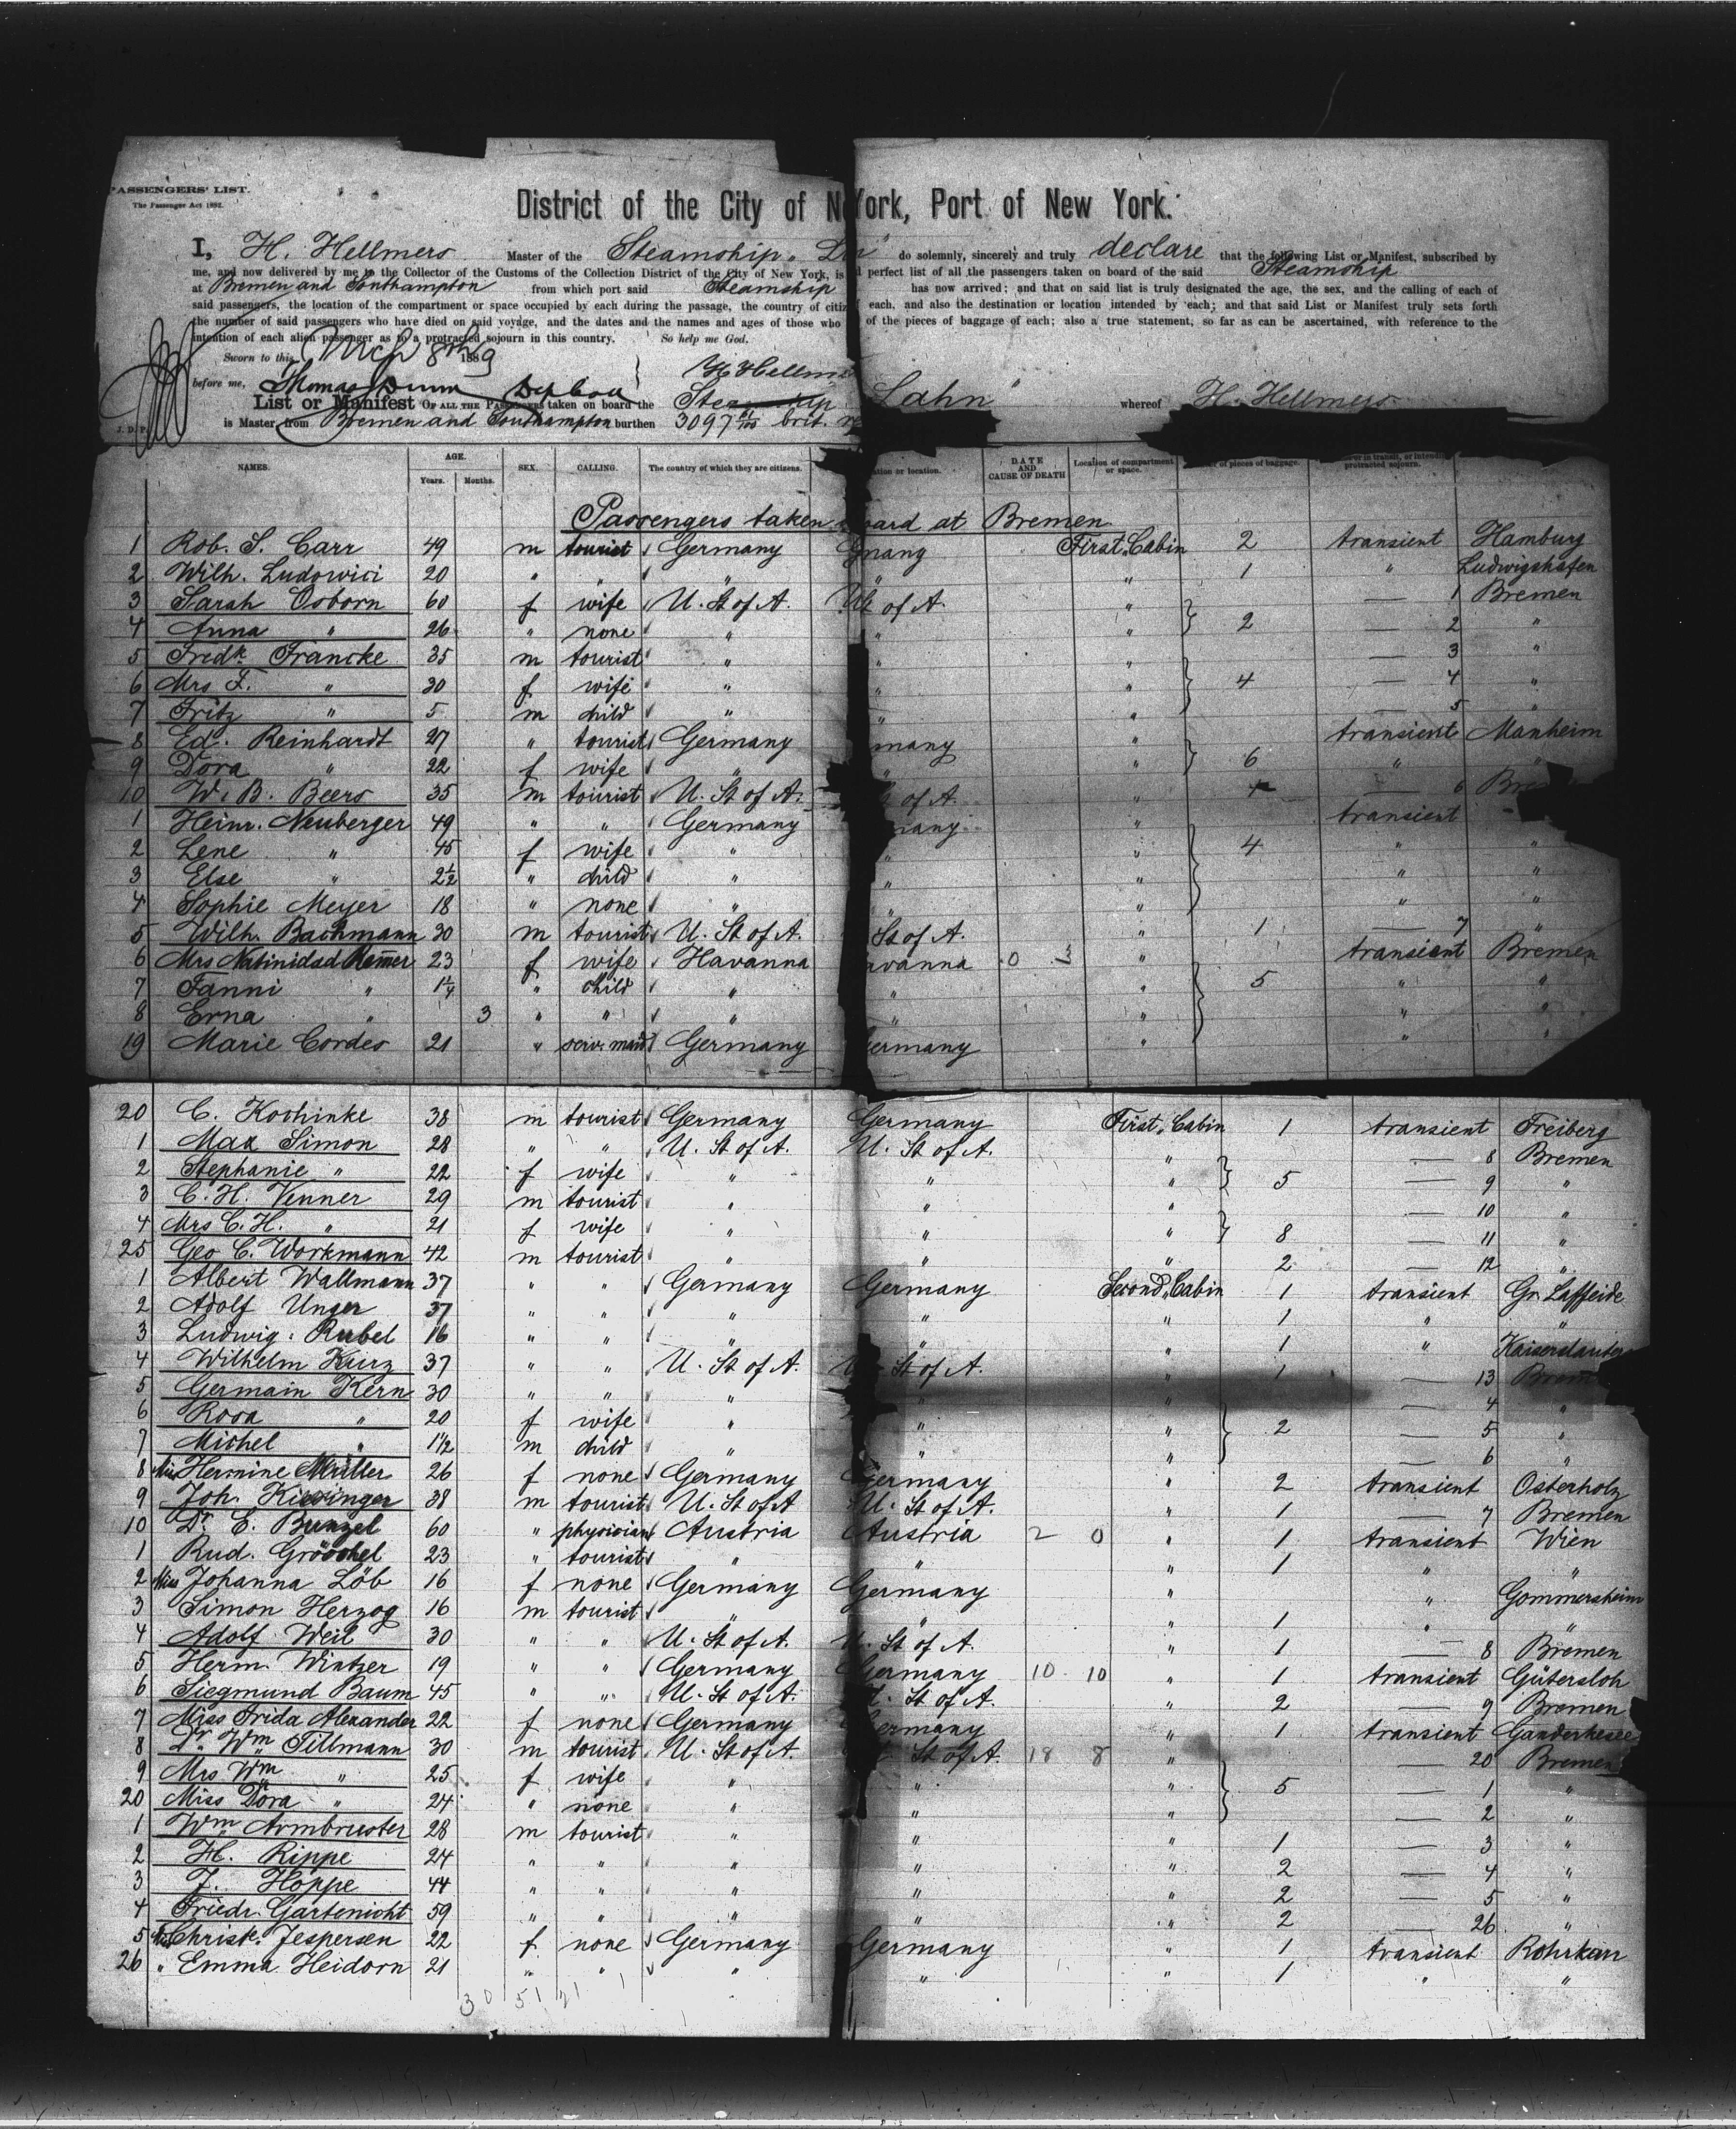 PASSENGERS' LIST.
The Passenger Act 1882.
District of the City of N York, Port of New York.
I, H. Hellmers Master of the Steamship " L n " do solemnly, sincerely and truly declare that the following List or Manifest, subscribed by
me, and now delivered by me to the Collector of the Customs of the Collection District of the City of New York, is perfect list of all the passengers taken on board of the said Steamship
at Bremen and Southampton from which port said Steamship has now arrived; and that on said list is truly designated the age, the sex, and the calling of each of
said passengers, the location of the compartment or space occupied by each during the passage, the country of citiz each, and also the destination or location intended by each; and that said List or Manifest truly sets forth
the number of said passengers who have died on said voyage, and the dates and the names and ages of those who of the pieces of baggage of each; also a true statement, so far as can be ascertained, with reference to the
intention of each alien passenger as to a protracted sojourn in this country. So help me God.
Sworn to this Mch 8th 1889 H Hellm
before me, Thomas Dunn
List or Manifest OF ALL THE PASSENGERS taken on board the Lahn " whereof H. Hellmers
J. D. P. is Master, from Bremen and Southampton burthen 3097 brit.
NAMES. AGE. Years. Months. SEX. CALLING. The country of which they are citizens. ation or location. DATE AND CAUSE OF DEATH Location of compartment or space. of pieces of baggage. or in transit, or intend protracted sojourn.
Passengers taken oard at Bremen
1 Rob. S. Carr 49 m tourist Germany many First Cabin 2 transient Hamburg
2 Wilh. Ludowici 20 " " " " " 1 " Ludwigshafen
3 Sarah Osborn 60 f wife U. St of A. U of A. " — 1 Bremen
4 Anna " 26 " none " " " 2 — 2 "
5 Fredk. Francke 35 m tourist " " " — 3 "
6 Mrs F. " 30 f wife " " " 4 — 4 "
7 Fritz " 5 m child " " " — 5 "
8 Ed. Reinhardt 27 " tourist Germany many " transient Manheim
9 Dora " 22 f wife " " " 6 " "
10 W. B. Beers 35 m tourist U. St of A. of A. " — 6 Bre
1 Heinr. Neuberger 49 " " Germany many " transient
2 Lene " 45 f wife " " " 4 " "
3 Else " 2½ " child " " " " "
4 Sophie Meyer 18 " none " " " " "
5 Wilh. Bachmann 30 m tourist U. St of A. St of A. " 1 — 7 "
6 Mrs Natinidad Remer 23 f wife Havanna avanna 0 " transient Bremen
7 Fanni " 1¼ " child " " " 5 " "
8 Erna " 3 " " " " " " "
19 Marie Cordes 21 " serv. maid Germany ermany " " "
20 C. Kochinke 38 m tourist Germany Germany First Cabin 1 transient Freiberg
1 Max Simon 28 " " U. St of A. U. St of A. " — 8 Bremen
2 Stephanie " 22 f wife " " " 5 — 9 "
3 C. H. Venner 29 m tourist " " " — 10 "
4 Mrs C. H. " 21 f wife " " " 8 — 11 "
25 Geo C. Workmann 42 m tourist " " " 2 — 12 "
1 Albert Wallmann 37 " " Germany Germany Second Cabin 1 transient Gr. Laffeide
2 Adolf Unger 37 " " " " " 1 " "
3 Ludwig Rubel 16 " " " " " 1 " Kaiserslauter
4 Wilhelm Kurz 37 " " U. St of A. St of A. " 1 — 13 Brem
5 Germain Kern 30 " " " " — 4 "
6 Rosa " 20 f wife " " " 2 — 5 "
7 Michel " 1½ m child " " " — 6 "
8 Miss Hermine Müller 26 f none Germany Germany " 2 transient Osterholz
9 Joh. Kissinger 38 m tourist U. St of A U. St of A. " 1 — 7 Bremen
10 Dr. E. Bunzel 60 " physician Austria Austria 2 0 " 1 transient Wien
1 Rud. Gröschel 23 " tourist " " " 1 " "
2 Miss Johanna Löb 16 f none Germany Germany " " Gommersheim
3 Simon Herzog 16 m tourist " " " 1 " "
4 Adolf Weil 30 " " U. St of A. St of A. " 1 — 8 Bremen
5 Herm. Wintzer 19 " " Germany Germany 10 10 " 1 transient Gütersloh
6 Siegmund Baum 45 " " U. St of A. St of A. " 2 — 9 Bremen
7 Miss Frida Alexander 22 f none Germany ermany " 1 transient Ganderkesee
8 Dr Wm Tillmann 30 m tourist U. St of A. St of A. 18 8 " — 20 Bremen
9 Mrs Wm " 25 f wife " " " 5 — 1 "
20 Miss Dora " 24 " none " " " — 2 "
1 Wm Armbruster 28 m tourist " " " 1 — 3 "
2 H. Rippe 24 " " " " " 2 — 4 "
3 J. Hoppe 44 " " " " " 2 — 5 "
4 Friedr. Gartenicht 59 " " " " " 2 — 26 "
5 Christe. Jespersen 22 f none Germany Germany " 1 transient Rohrkarr
26 " Emma Heidorn 21 " " " " " 1 " "
30 51 21